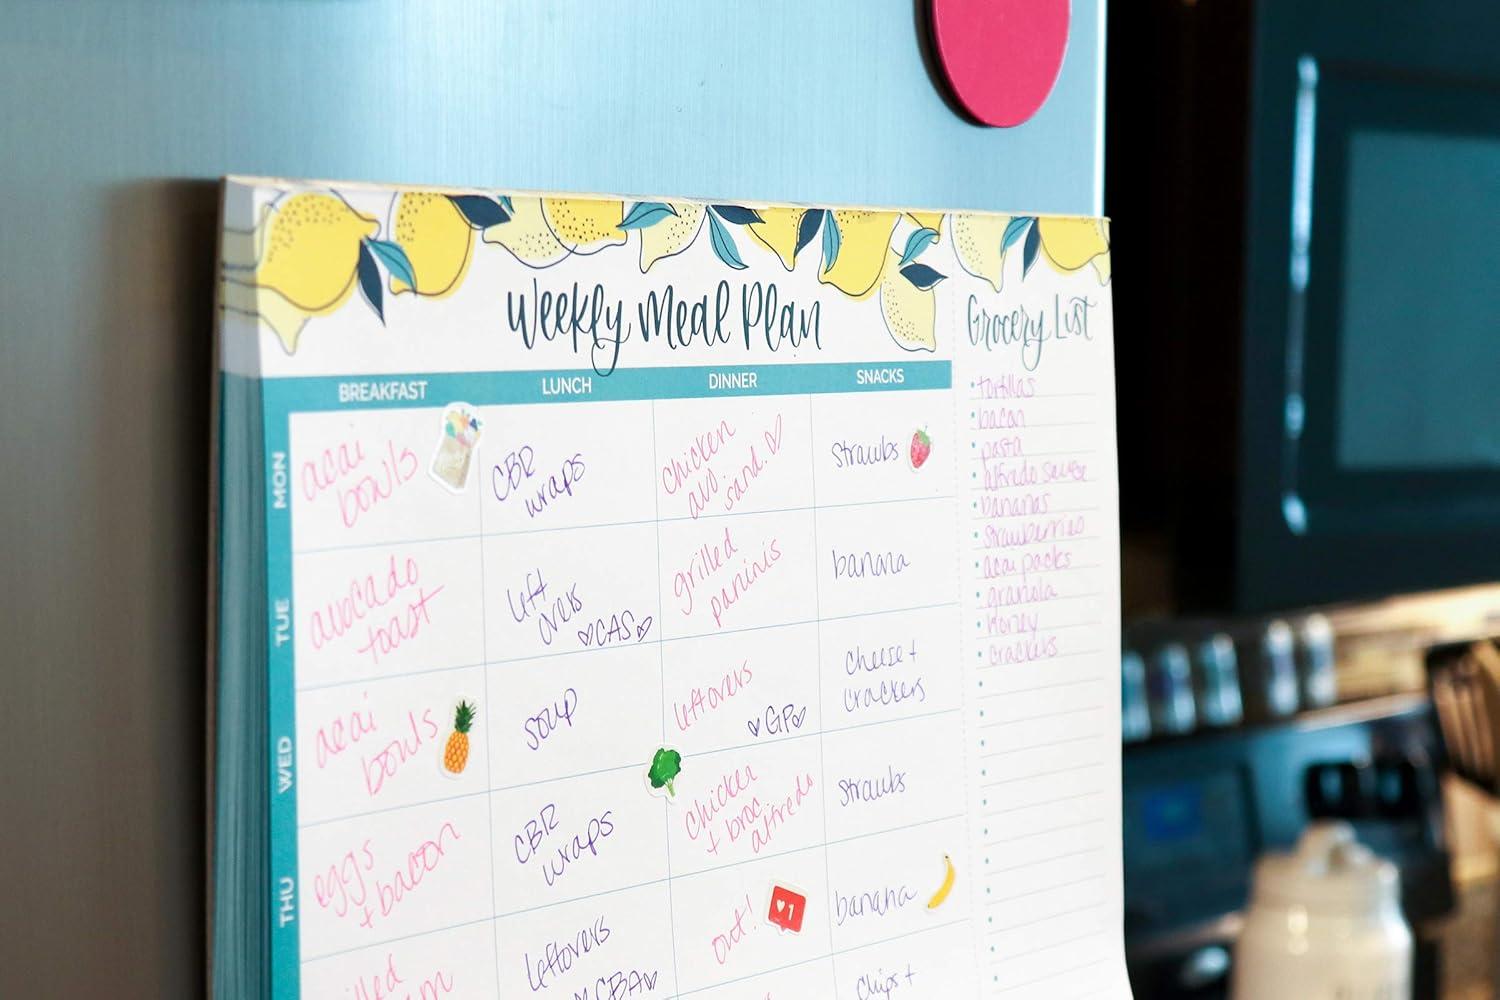 Weekly Meal Plan
BREAKFAST LUNCH DINNER SNACKS
MON
acai
bowls
CBR
wraps
chicken
avo
sand.
Strawbs
TUE
avocado
toast
left
overs
CAS
grilled
paninis
banana
WED
acai
bowls
soup
leftovers
GP
cheese +
crackers
THU
eggs
+ bacon
CBR
wraps
chicken
+ broc
alfredo
Strawbs
leftovers
CBA
out!
1
banana
chips +
Grocery List
tortillas
bacon
pasta
alfredo sauce
bananas
strawberries
acai packs
granola
honey
crackers